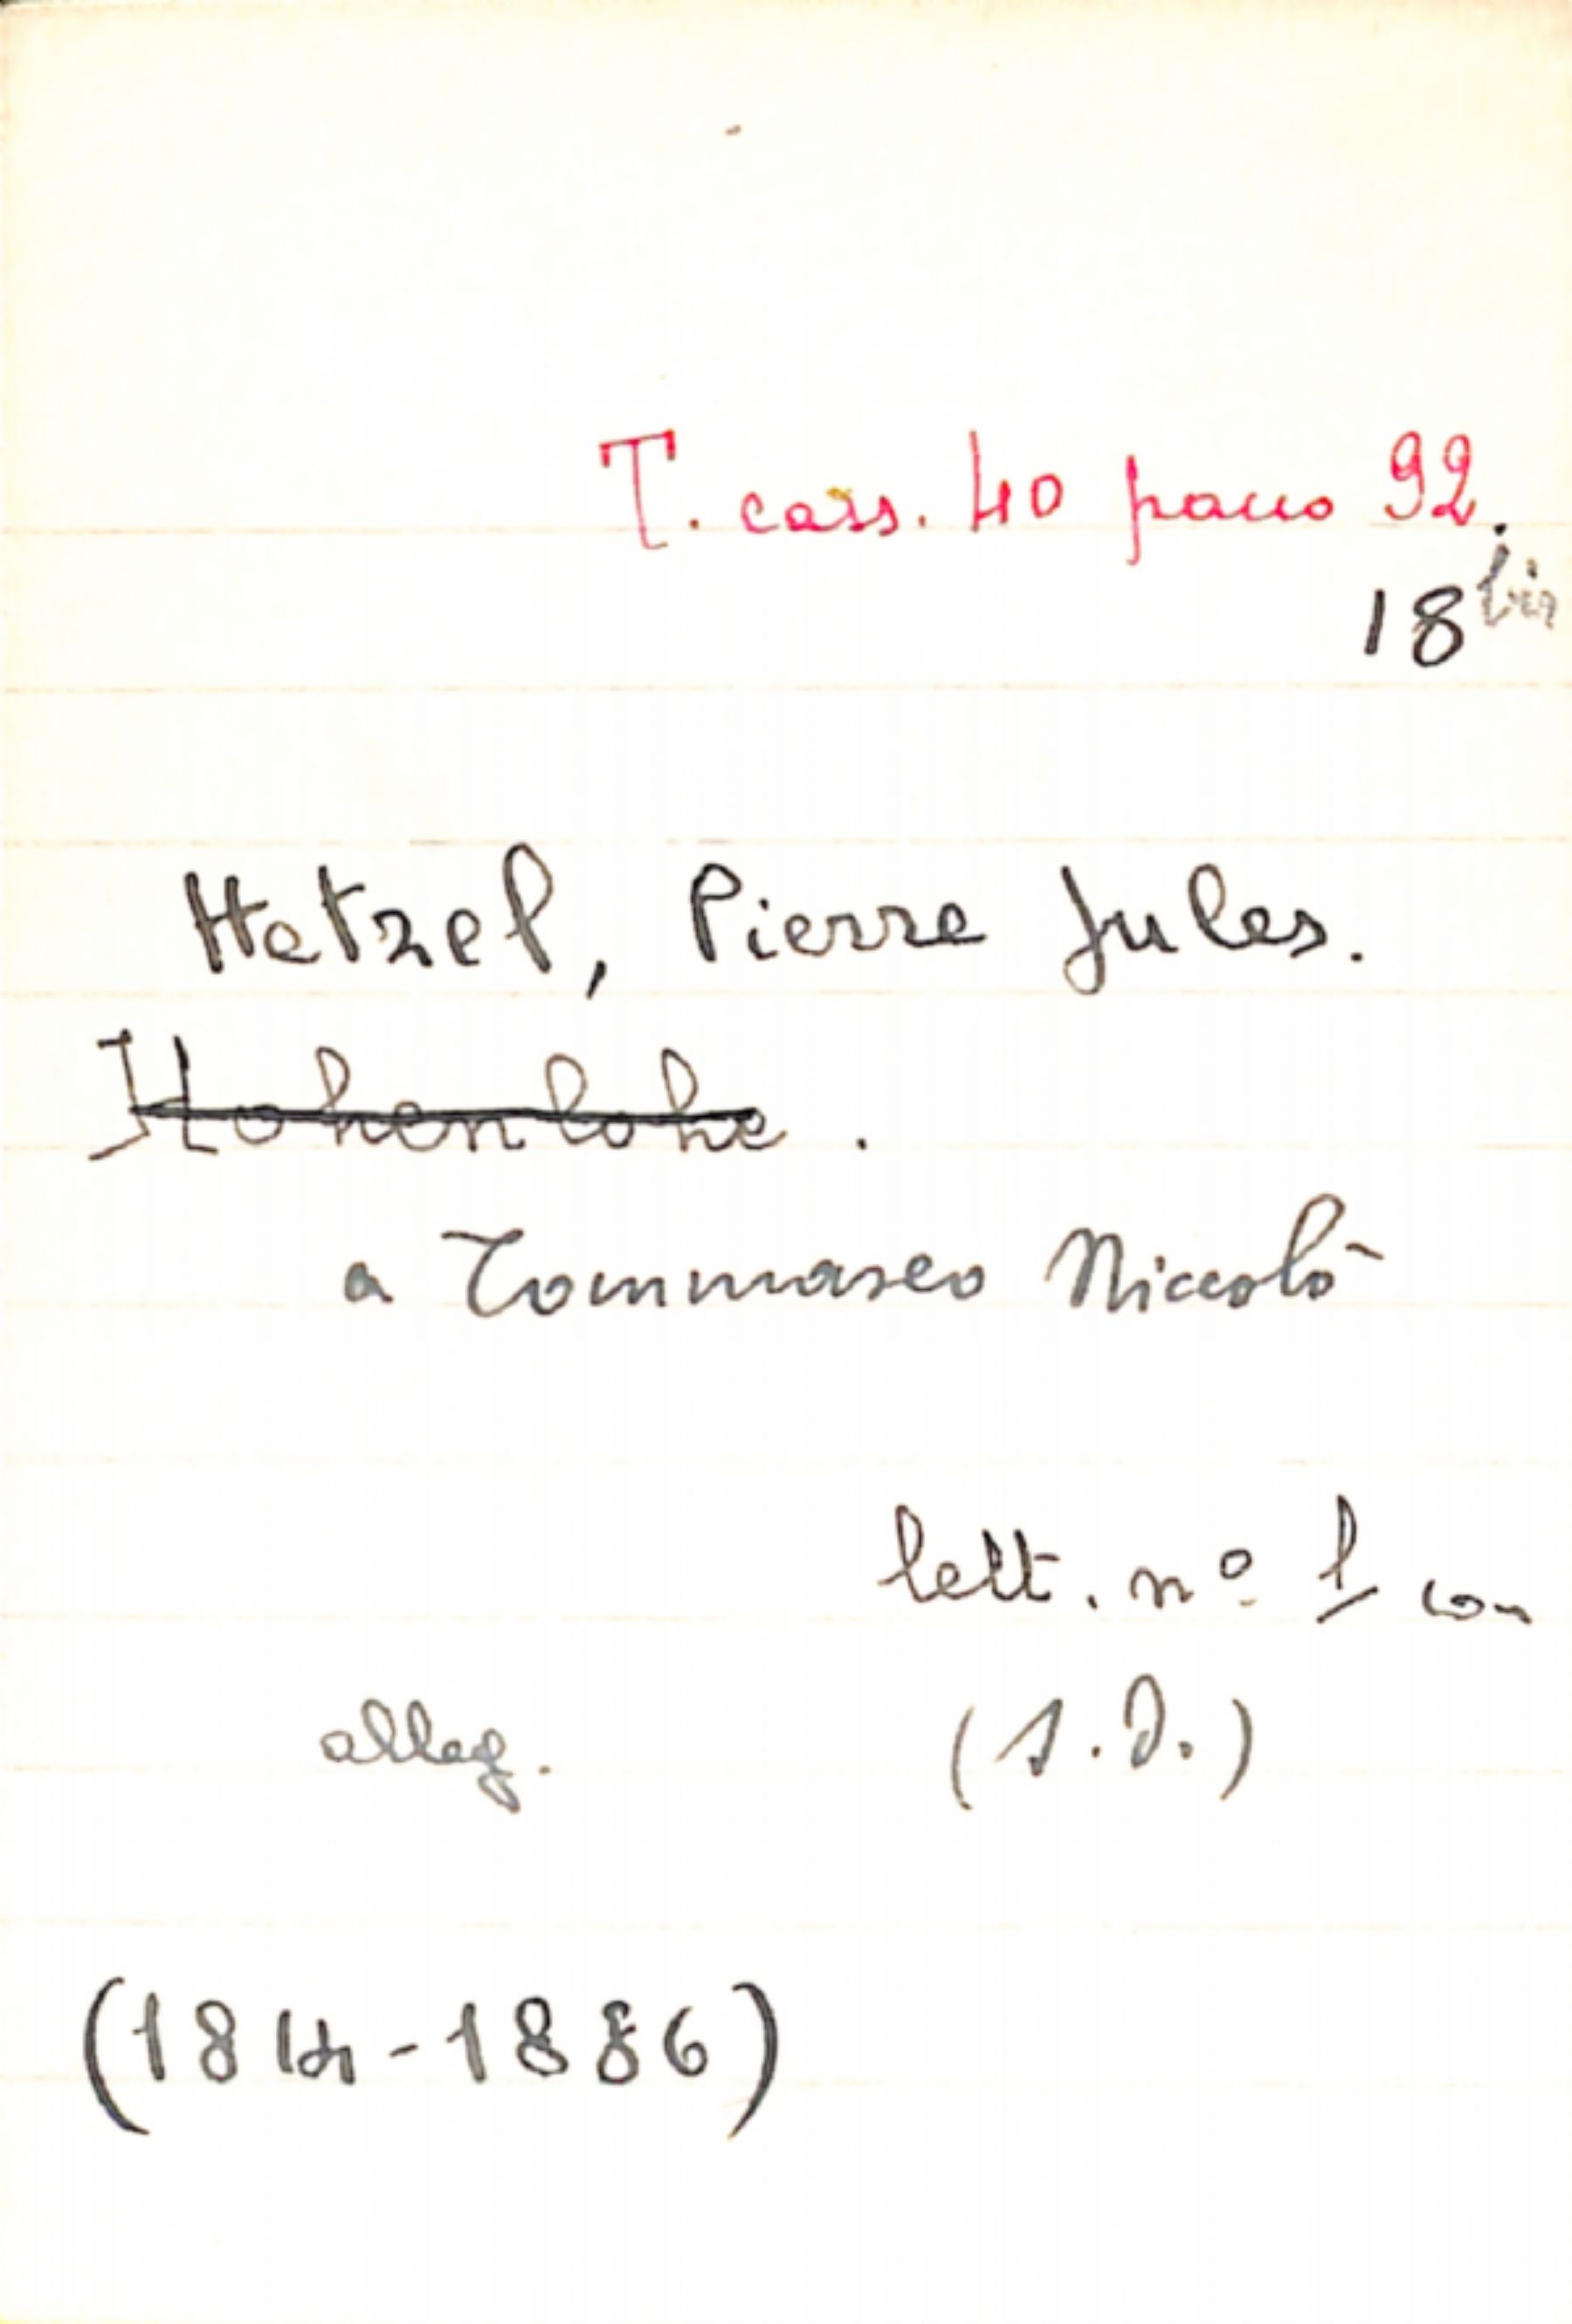 T. cass. 40 pacco 92.
18 bis
Hetzel, Pierre Jules.
Hohenlohe.
a Tommaseo Niccolò
lett. nº 1 con
alleg. (s.d.)
(1814-1886)